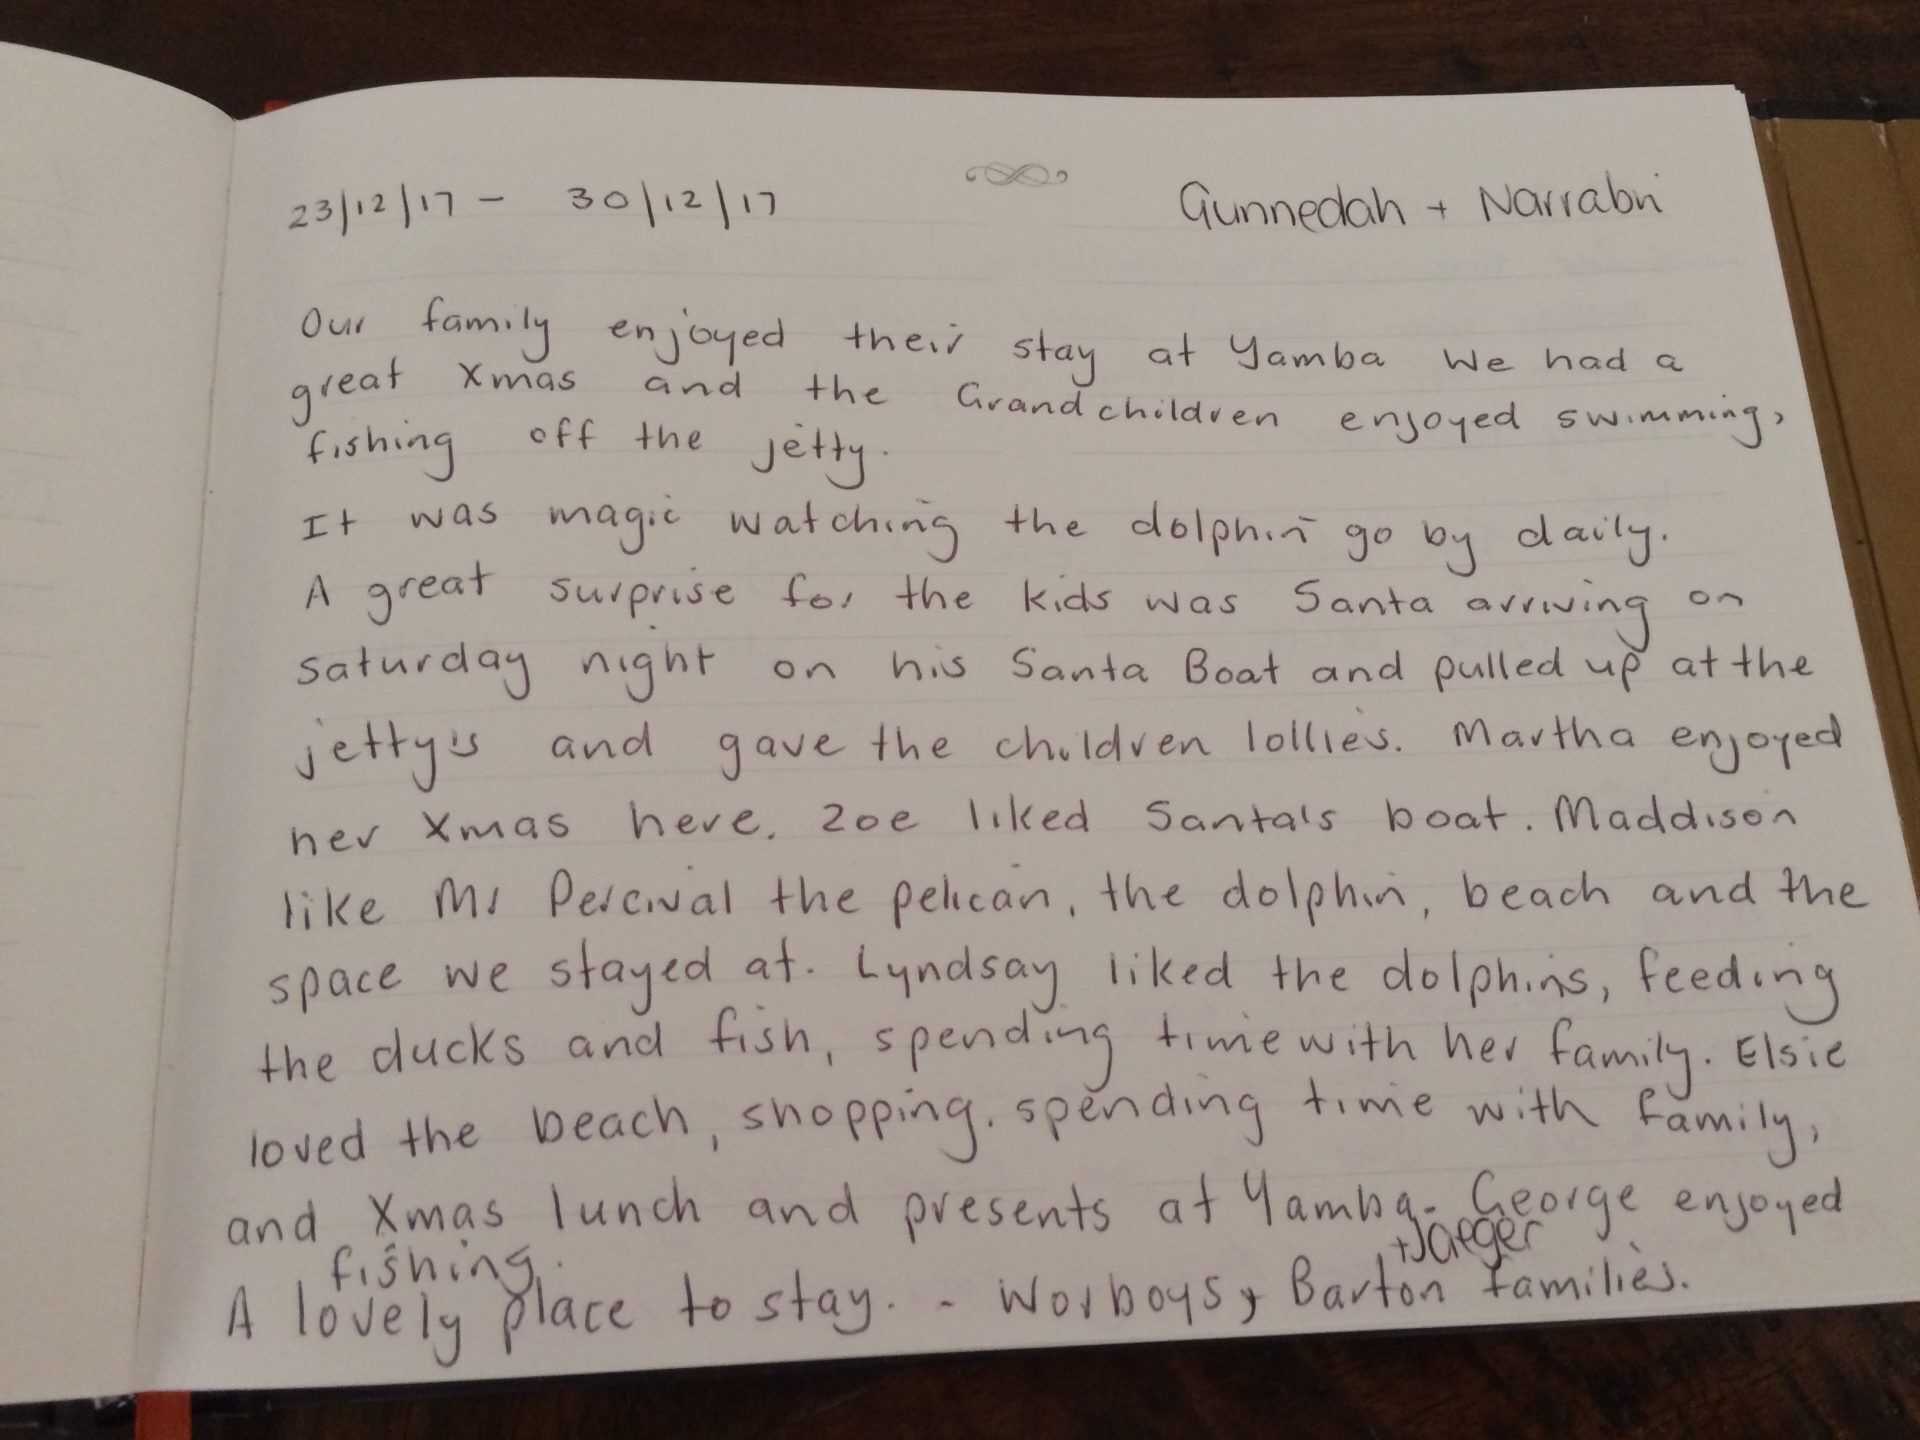 23/12/17 - 30/12/17 Gunnedah + Narrabri
Our family enjoyed their stay at Yamba We had a
great Xmas and the Grandchildren enjoyed swimming,
fishing off the jetty.
It was magic watching the dolphin go by daily.
A great surprise for the kids was Santa arriving on
saturday night on his Santa Boat and pulled up at the
jetty's and gave the children lollies. Martha enjoyed
her Xmas here. Zoe liked Santa's boat. Maddison
like Mr Percival the pelican, the dolphin, beach and the
space we stayed at. Lyndsay liked the dolphins, feeding
the ducks and fish, spending time with her family. Elsie
loved the beach, shopping, spending time with family,
and Xmas lunch and presents at Yamba. George enjoyed
fishing.
+ Jaeger
A lovely place to stay. - Worboys, Barton families.